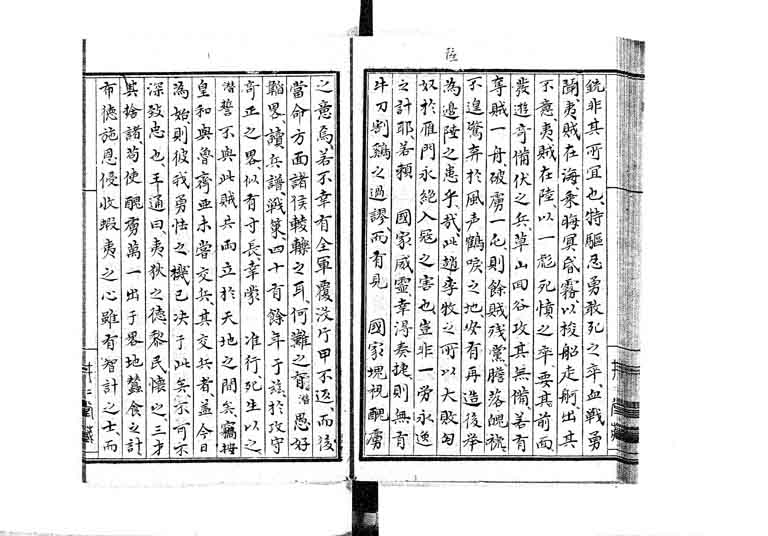 陸
銃非其所宜也、特駆忍勇敢死之卒、血戦勇
闘、夷賊在海、乗晦冥昏霧、以梭船走舸、出其
不意、夷賊在陸、以一彪死憤之卒、要其前、而
發遊奇備伏之兵、草山田谷、攻其無備、善有
奪賊一舟、破虜一屯、則餘賊残黨、膽落魄褫、
不遑驚弃於風声鶴唳之地、安有再造後挙
為邊陸之患乎哉、此趙李牧之所以大敗匈
奴於雁門、永絶入冦之害也、豈非一労永逸
之計耶、若頼 國家威靈、幸得奏捷、則無有
牛刀割鷄之過謬、而有見 國家塊視醜虜
之意焉、若不幸有全軍覆没片甲不返、而後
當命方面諸侯轅轢之耳、何難之有、潜愚好
韜畧、讀兵譜戦策、四十有餘年于玆、於攻守
奇正之畧、似有寸長、幸蒙 准行、死生以之、
潜誓不與此賊共両立於天地之間矣、竊按
皇和與魯齋亜未嘗交兵、其交兵者、蓋今日
為始、則彼我勇怯之機、已决于此矣、不可不
深致忠也、王通曰、夷狄之德、黎民懐之、三才
其捨諸、苟使醜虜萬一出于畧地蠶食之計
布德施恩、侵收蝦夷之心、雖有智計之士、而